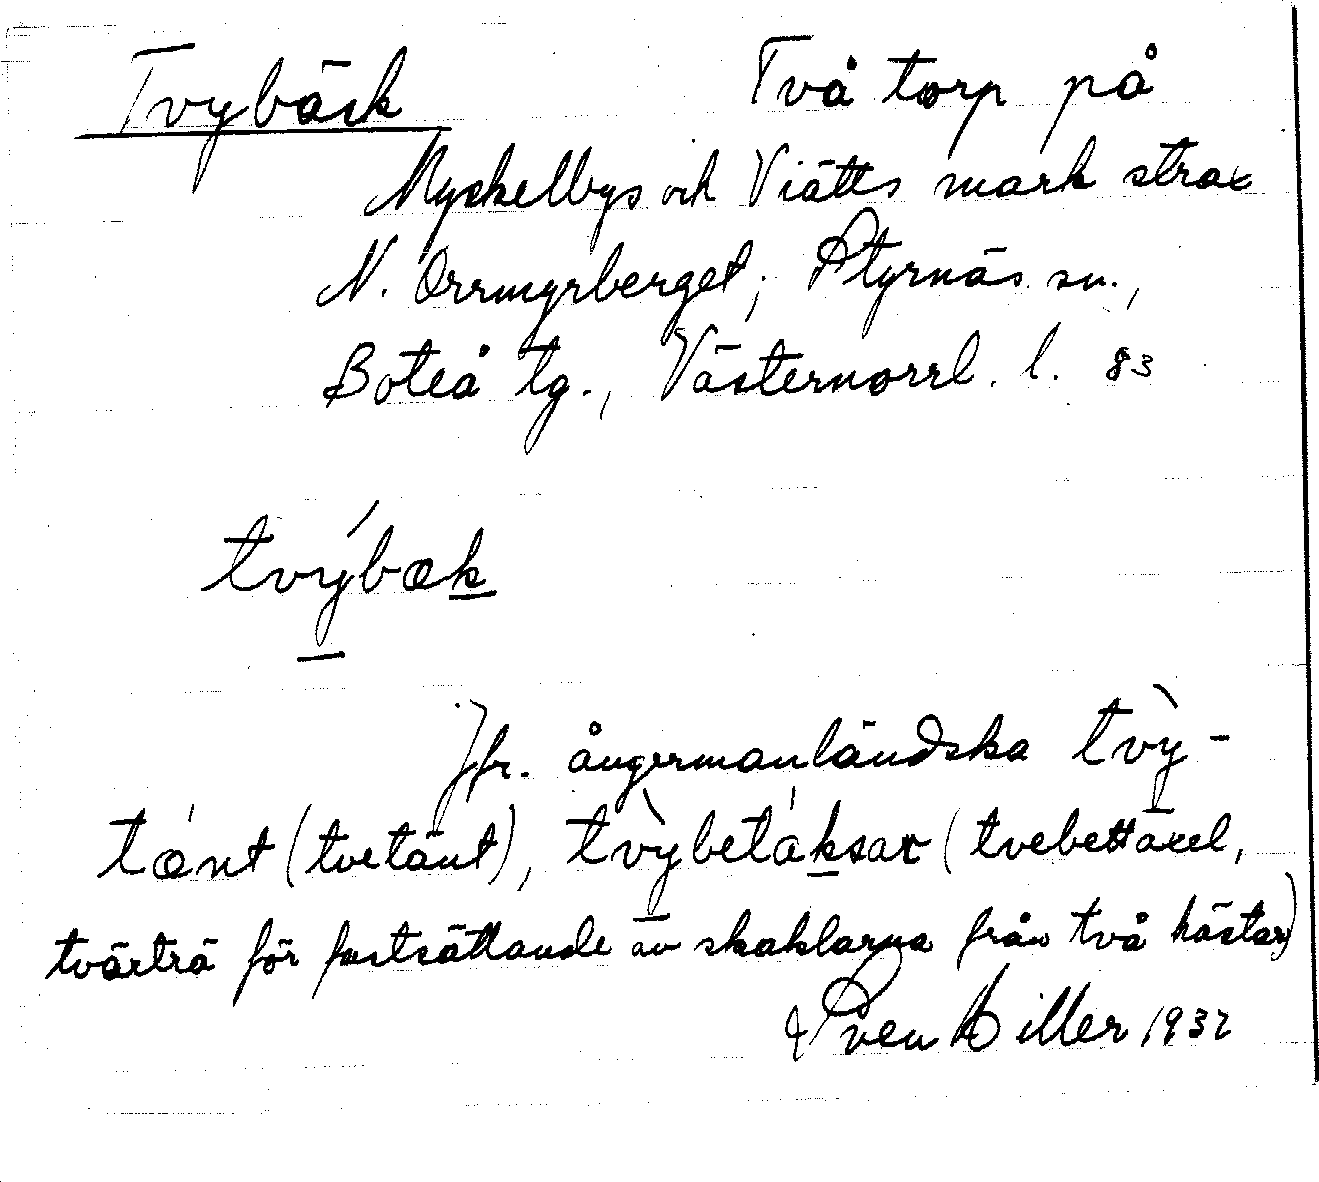 Tvybäck Två torp på
Myckelbys och Viätts mark strax
N. Orrmyrberget, Styrnäs sn.,
Boteå tg., Västernorrl. l. 83
tvýbæk
Jfr. ångermanländska tvỳ-
tǽnt (tvetänt), tvỳbetáksar (tvebettäxel,
tvärträ för fastsättande av skaklarna från två hästar)
Sven Hiller 1932